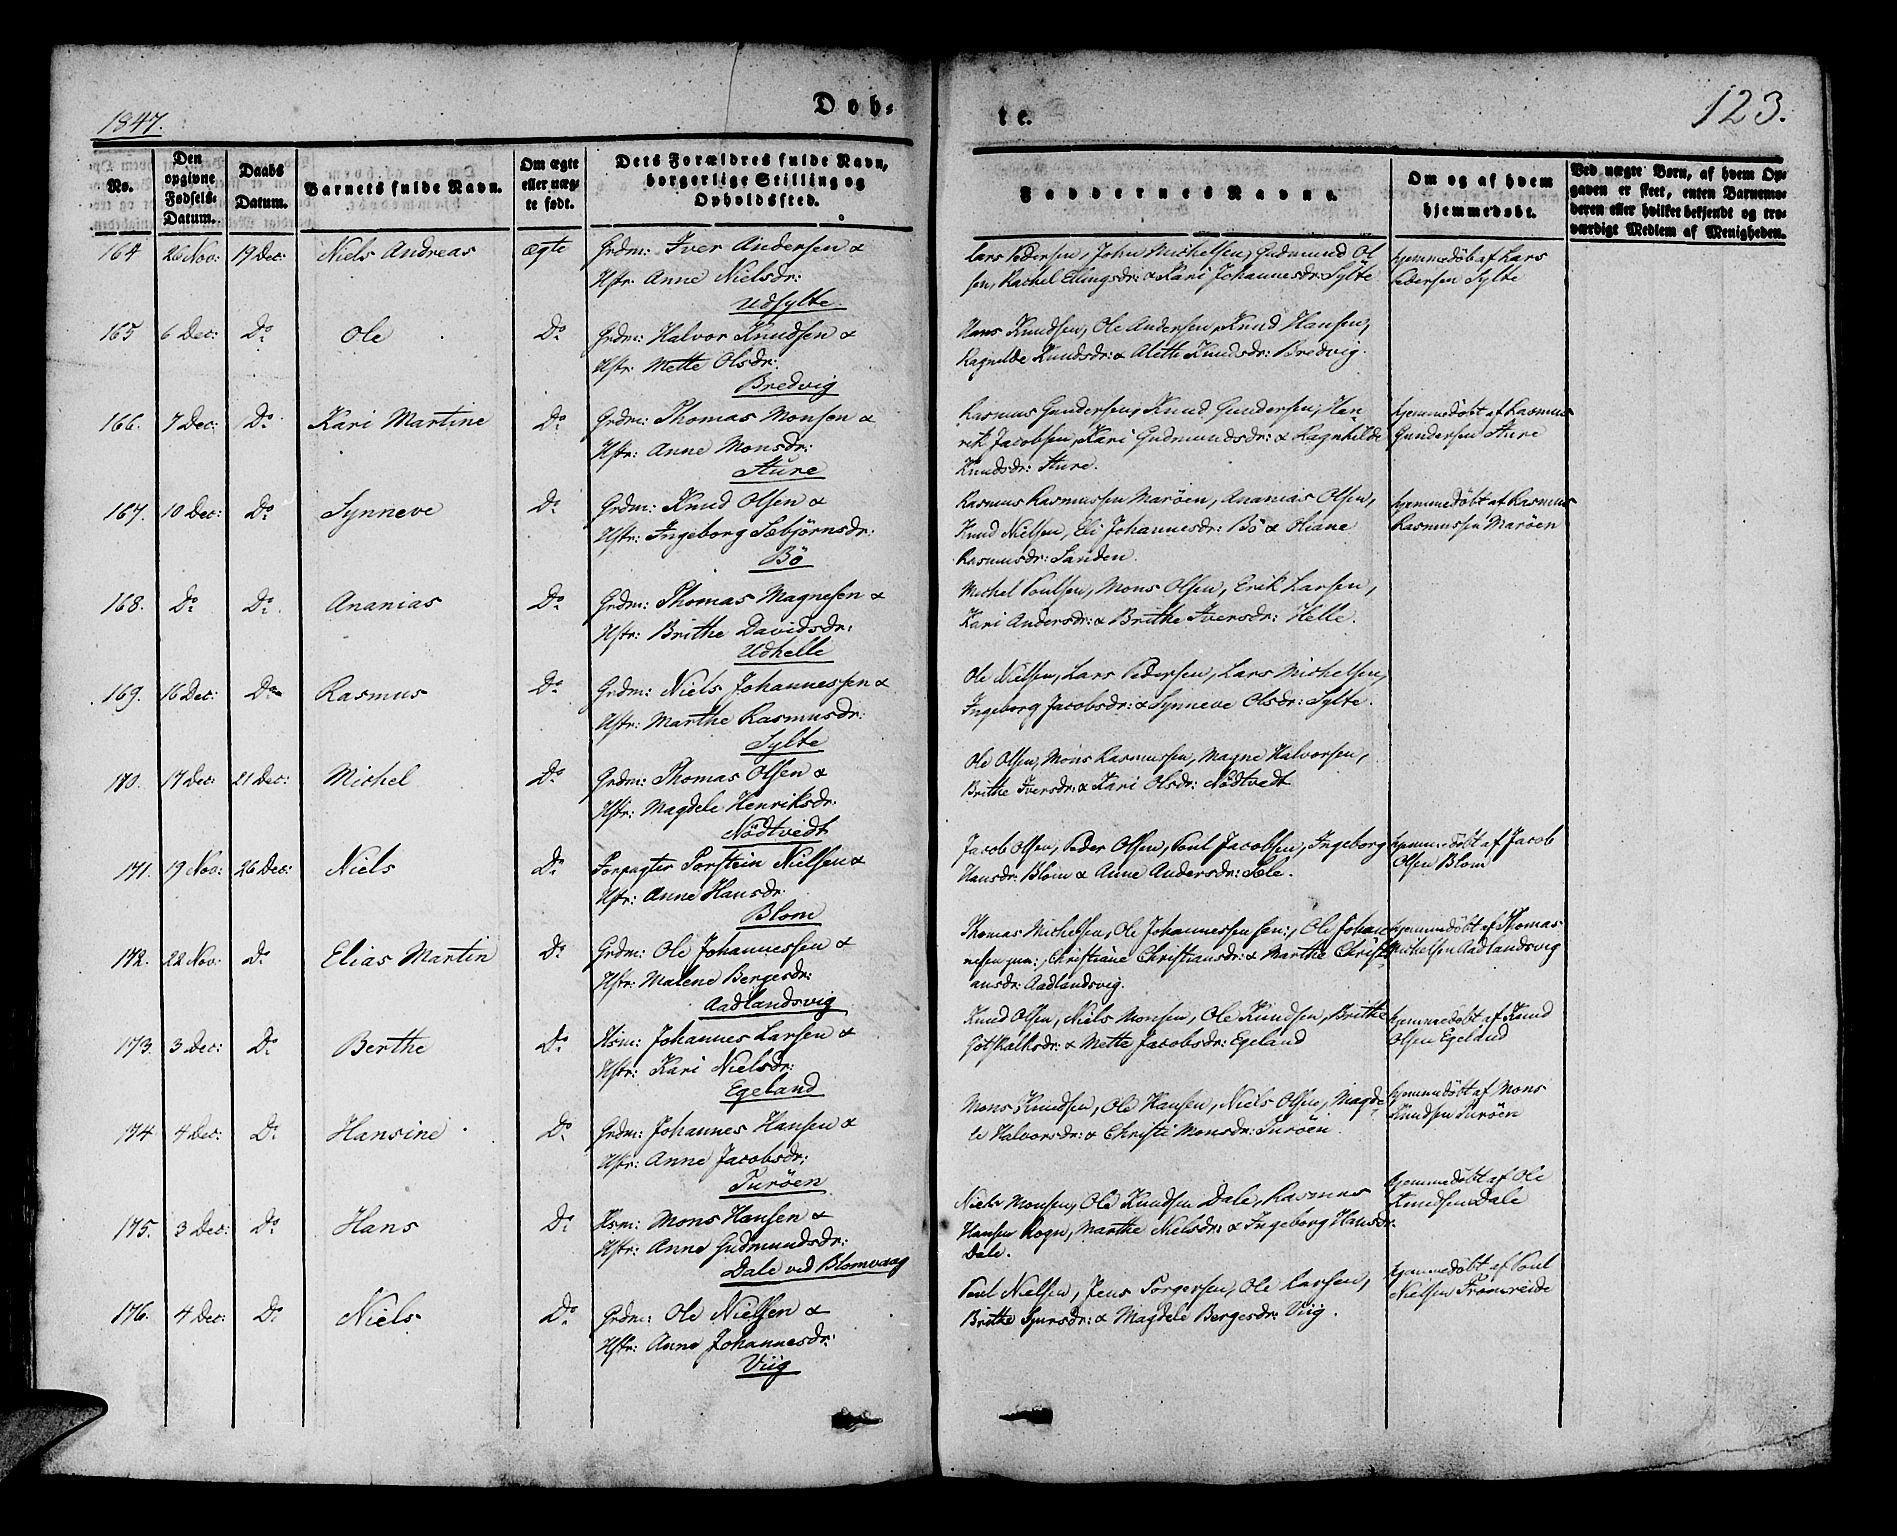 1847.
Døb-
te.
123.
No.
Den opgivne Fødsels-Datum.
Daabs Datum.
Barnets fulde Navn.
Om ægte eller uæg-te født.
Dets Forældres fulde Navn, borgerlige Stilling og Opholdssted.
Faddernes Navne.
Om og af hvem hjemmedøbt.
Ved uægte Børn, af hvem Op-gaven er skeet, enten Barnemo-deren eller hvilket bekjendt og tro-værdigt Medlem af Menigheden.
164 26 Nov: 19 Dec: Niels Andreas ægte Grdm: Iver Andersen &
Hstr: Anne Nielsdr:
Udsylte.
Lars Pedersen, John Michelsen, Gudmund Ol
sen, Rachel Ellingsdr: & Kari Johannesdr: Sylte
hjemmedöb af Lars
Pedersen Sylte
165 6 Dec: Do. Ole Do. Grdm: Halvor Knudsen &
Hstr: Mette Olsdr:
Bredvig
Hans Knudsen, Ole Andersen, Knud Hansen,
Ragnilde Knudsdr: & Alethe Knudsdr: Bredvig.
166. 7 Dec: Do. Kari Martine Do. Grdm: Thomas Monsen &
Hstr: Anne Monsdr:
Sture
Rasmus Gundersen, Knud Gundersen, Hen-
rik Jacobsen, Kari Gudmundsdr: & Ragnhilde
Knudsdr: Sture.
hjemmedöbt af Rasmus
Gundersen Sture
167. 10 Dec: Do. Synneve Do. Grdm: Knud Olsen &
Hstr: Ingeborg Sæbjörnsdr:
Bö
Rasmus Rasmussen Maröen, Ananias Olsen,
Knud Nielsen, Eli Johannesdr: Bö & Oliane
Rasmusdr: Landen.
hjemmedöbt af Rasmus
Rasmussen Maröen
168. Do. Do. Ananias Do. Grdm: Thomas Magnesen &
Hstr: Brithe Davidsdr:
Udhelle
Michel Poulsen, Mons Olsen, Erik Larsen,
Kari Andersdr: & Brithe Iversdr: Helle.
169. 16 Dec: Do. Rasmus Do. Grdm: Niels Johannessen &
Hstr: Marthe Rasmusdr:
Sylte
Ole Nielsen, Lars Pedersen, Lars Michelsen,
Ingeborg Jacobsdr: & Synneve Olsdr: Sylte.
170. 17 Dec: 21 Dec: Michel Do. Grdm: Thomas Olsen &
Hstr: Magdele Henriksdr:
Nödtvedt
Ole Olsen, Mons Rasmussen, Magne Halvorsen,
Brithe Iversdr: & Kari Olsdr: Nödtvedt
171. 19 Nov: 26 Dec: Niels Do. Forpagter Torstein Nielsen &
Hstr: Anne Hansdr:
Blom
Jacob Olsen, Peder Olsen, Poul Jacobsen, Ingeborg
Hansdr: Blom & Anne Andersdr: Sæle.
hjemmedöbt af Jacob
Olsen Blom
172. 22 Nov: Do. Elias Martin Do. Grdm: Ole Johannessen &
Hstr: Malene Bergesdr:
Aadlandsvig
Thomas Michelsen, Ole Johannessen sen:, Ole Johan
nesen jun:, Christiane Christiansdr: & Marthe Christi
ansdr: Aadlandsvig.
hjemmedöbt af Thomas
Michelsen Aadlandsvig
173. 3 Dec: Do. Berthe Do. Hsm: Johannes Larsen &
Hstr: Kari Nielsdr:
Egeland
Knud Olsen, Niels Monsen, Ole Knudsen, Brithe
Gotskalksdr: & Mette Jacobsdr: Egeland
hjemmedöbt af Knud
Olsen Egeland
174 4 Dec: Do. Hansine Do. Grdm: Johannes Hansen &
Hstr: Anne Jacobsdr:
Turöen
Mons Knudsen, Ole Hansen, Niels Olsen, Magde
le Halvorsdr: & Christi Monsdr: Turöen.
hjemmedöbt af Mons
Knudsen Turöen
175. 3 Dec: Do. Hans Do. Hsm: Mons Hansen &
Hstr: Anne Gudmundsdr:
Dale ved Blomvaag
Niels Monsen, Ole Knudsen Dale, Rasmus
Hansen Rogn, Marthe Nielsdr: & Ingeborg Hansdr.
Dale.
hjemmedöbt af Ole
Knudsen Dale
176. 4 Dec: Do. Niels Do. Grdm: Ole Nielsen &
Hstr: Anne Johannesdr:
Viig
Poul Nielsen, Jens Torgersen, Ole Larsen,
Brithe Sjursdr: & Magdele Bergesdr: Viig.
hjemmedöbt af Poul
Nielsen Fromreide